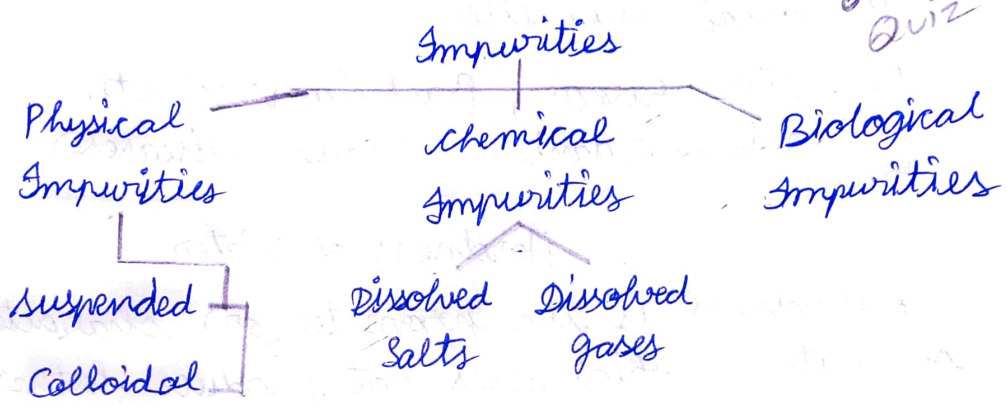 Quiz
Impurities
Physical
Impurities
Chemical
Impurities
Biological
Impurities
Suspended
Colloidal
Dissolved
Salts
Dissolved
gases